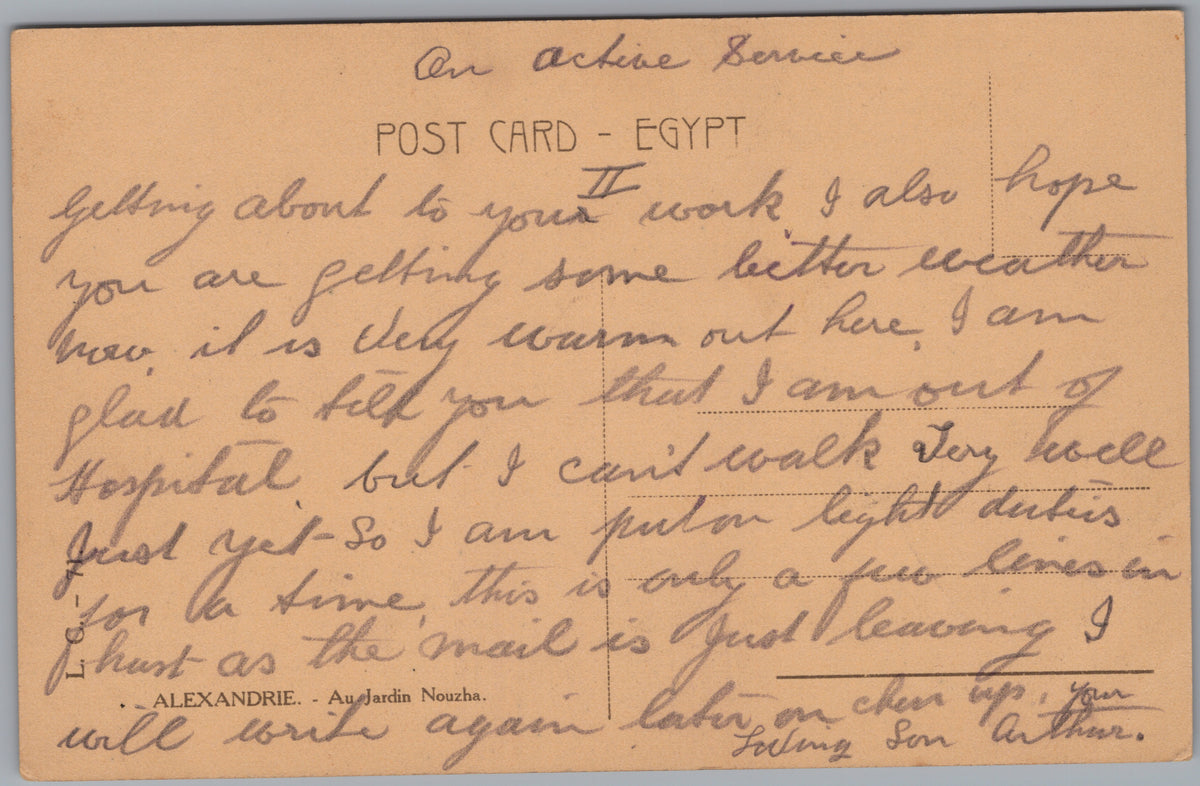 On Active Service
POST CARD - EGYPT
II
Getting about to your work I also hope
you are getting some better weather
now, it is Very warm out here, I am
glad to tell you that I am out of
Hospital, but I can't walk Very well
Just yet - So I am put on light duties
for a time, this is only a few lines in
hast as the mail is Just leaving I
will write again later on cheer up, your
Loving Son Arthur.
L. C. -
ALEXANDRIE. - Au Jardin Nouzha.